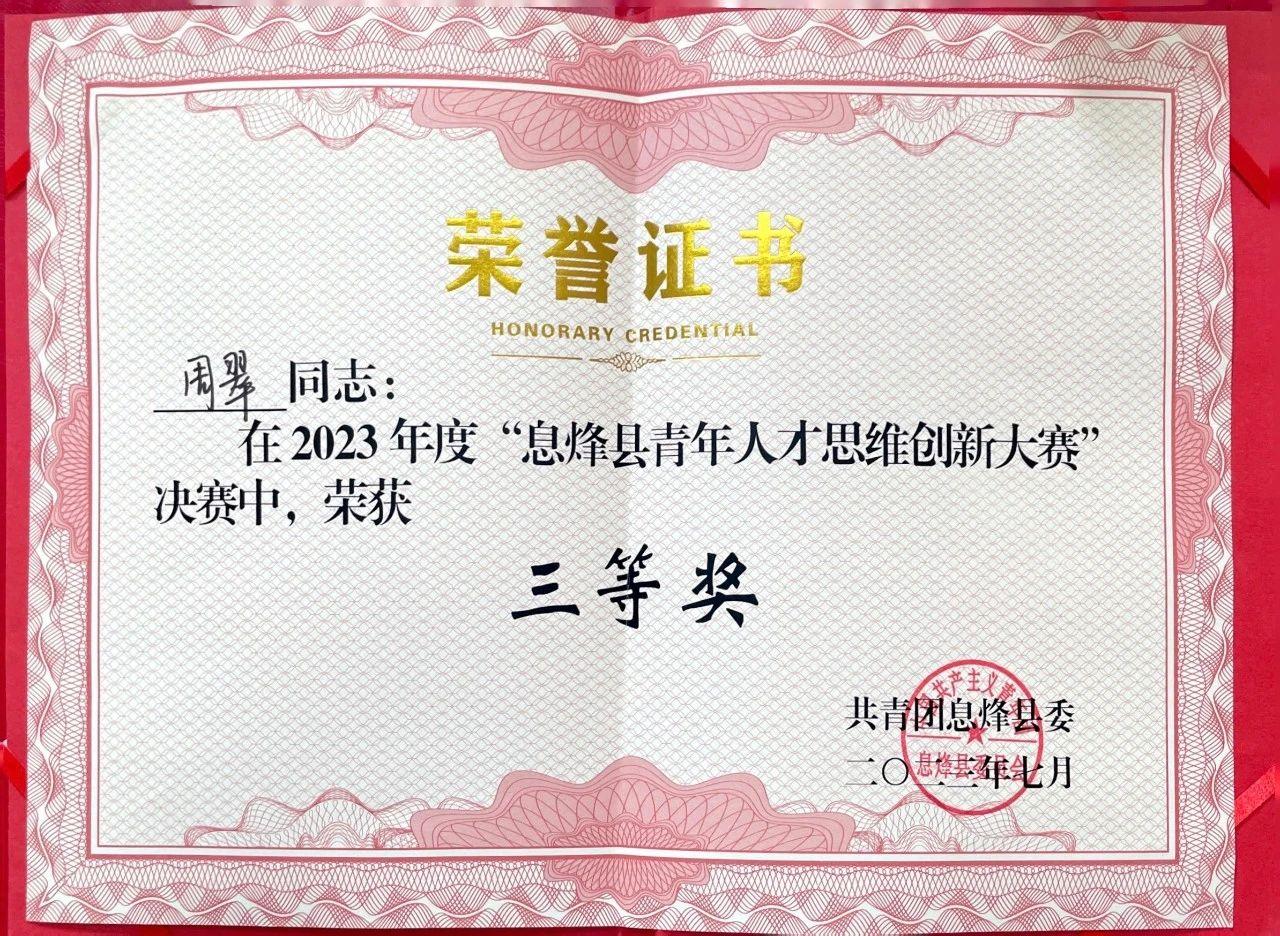 荣誉证书
HONORARY CREDENTIAL
周翠 同志：
在 2023 年度“息烽县青年人才思维创新大赛”
决赛中，荣获
三等奖
共青团息烽县委
二〇二三年七月
共产主义青年
息烽县委员会